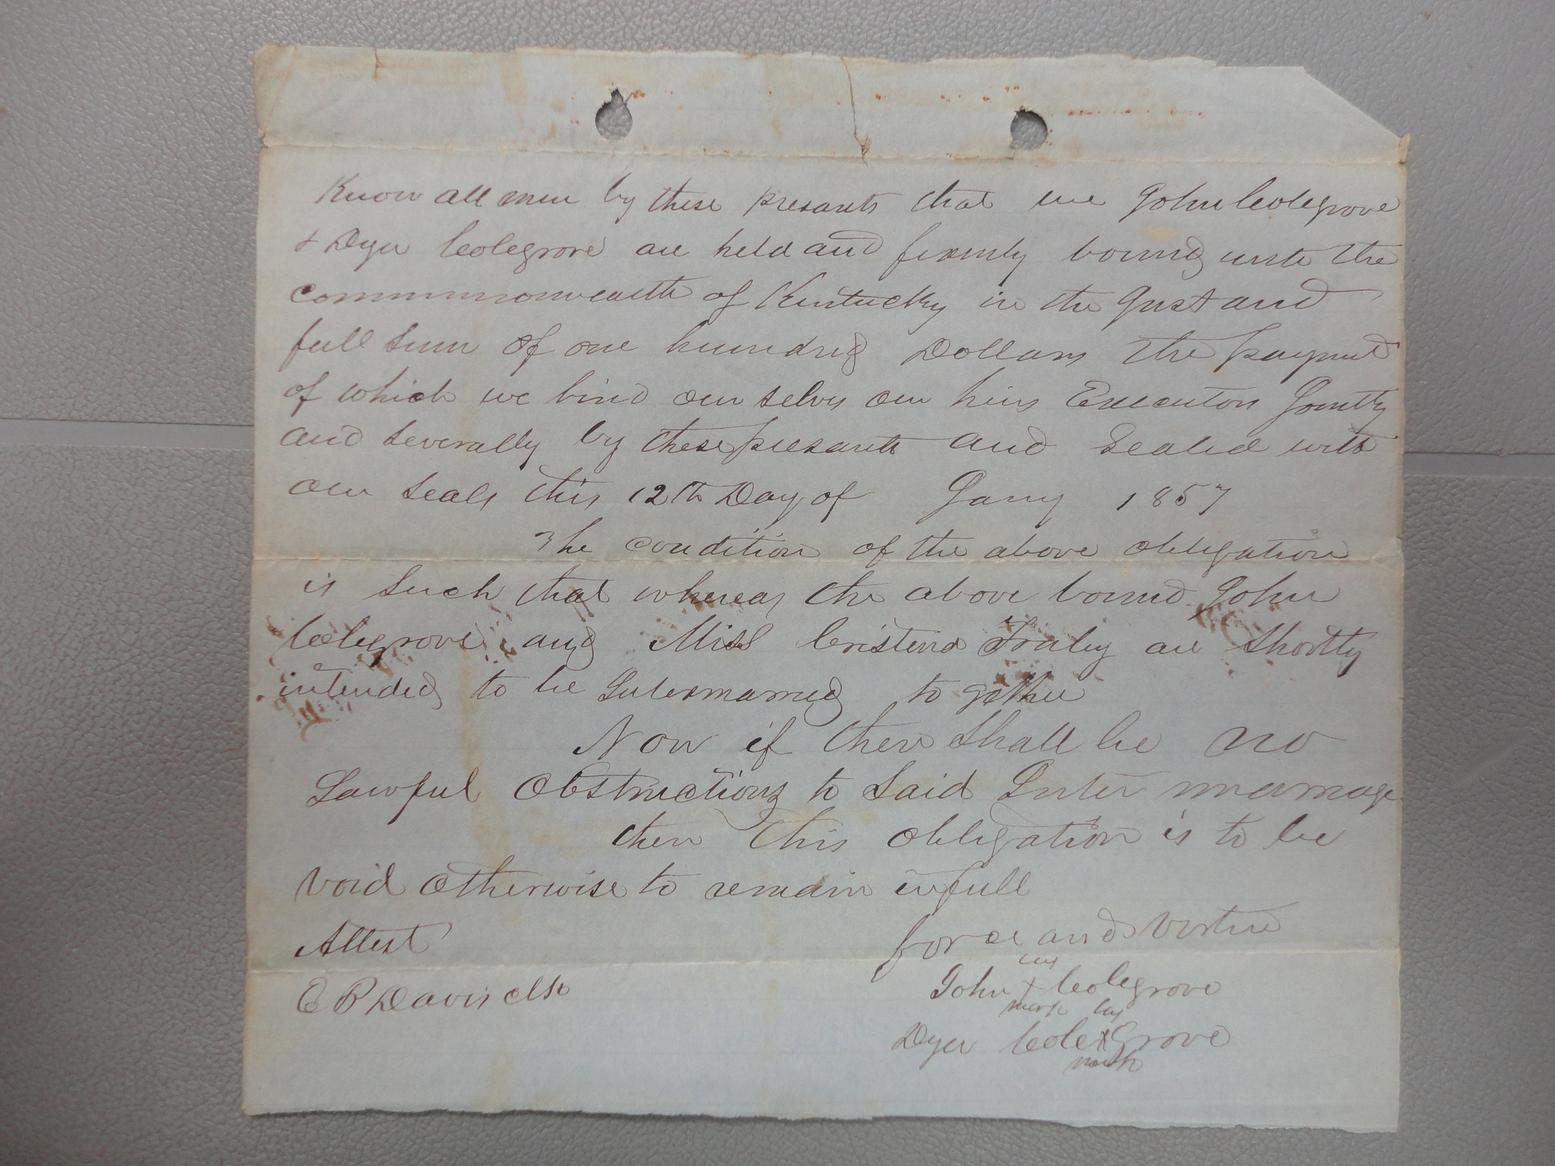 Know all men by these presants that we John Colegrove
& Dyer Colegrove are held and firmly bound unto the
commonwealth of Kentucky in the Just and
full Sum of one hundred Dollars the payment
of which we bind our selves our heirs Executors Jointly
and Severally by these presants and Sealed with
our Seals this 12th Day of Jany 1857
The condition of the above obligation
is Such that whereas the above bound John
Colegrove and Miss Cristena Fraley are Shortly
intended to be Intermarried to gether
Now if there Shall be no
Lawful Obstructions to Said Inter marriage
then this obligation is to be
Void otherwise to remain in full
force and Virtue
Attest
John his x mark Colegrove
E P Davis clk
Dyer Cole his x mark Grove